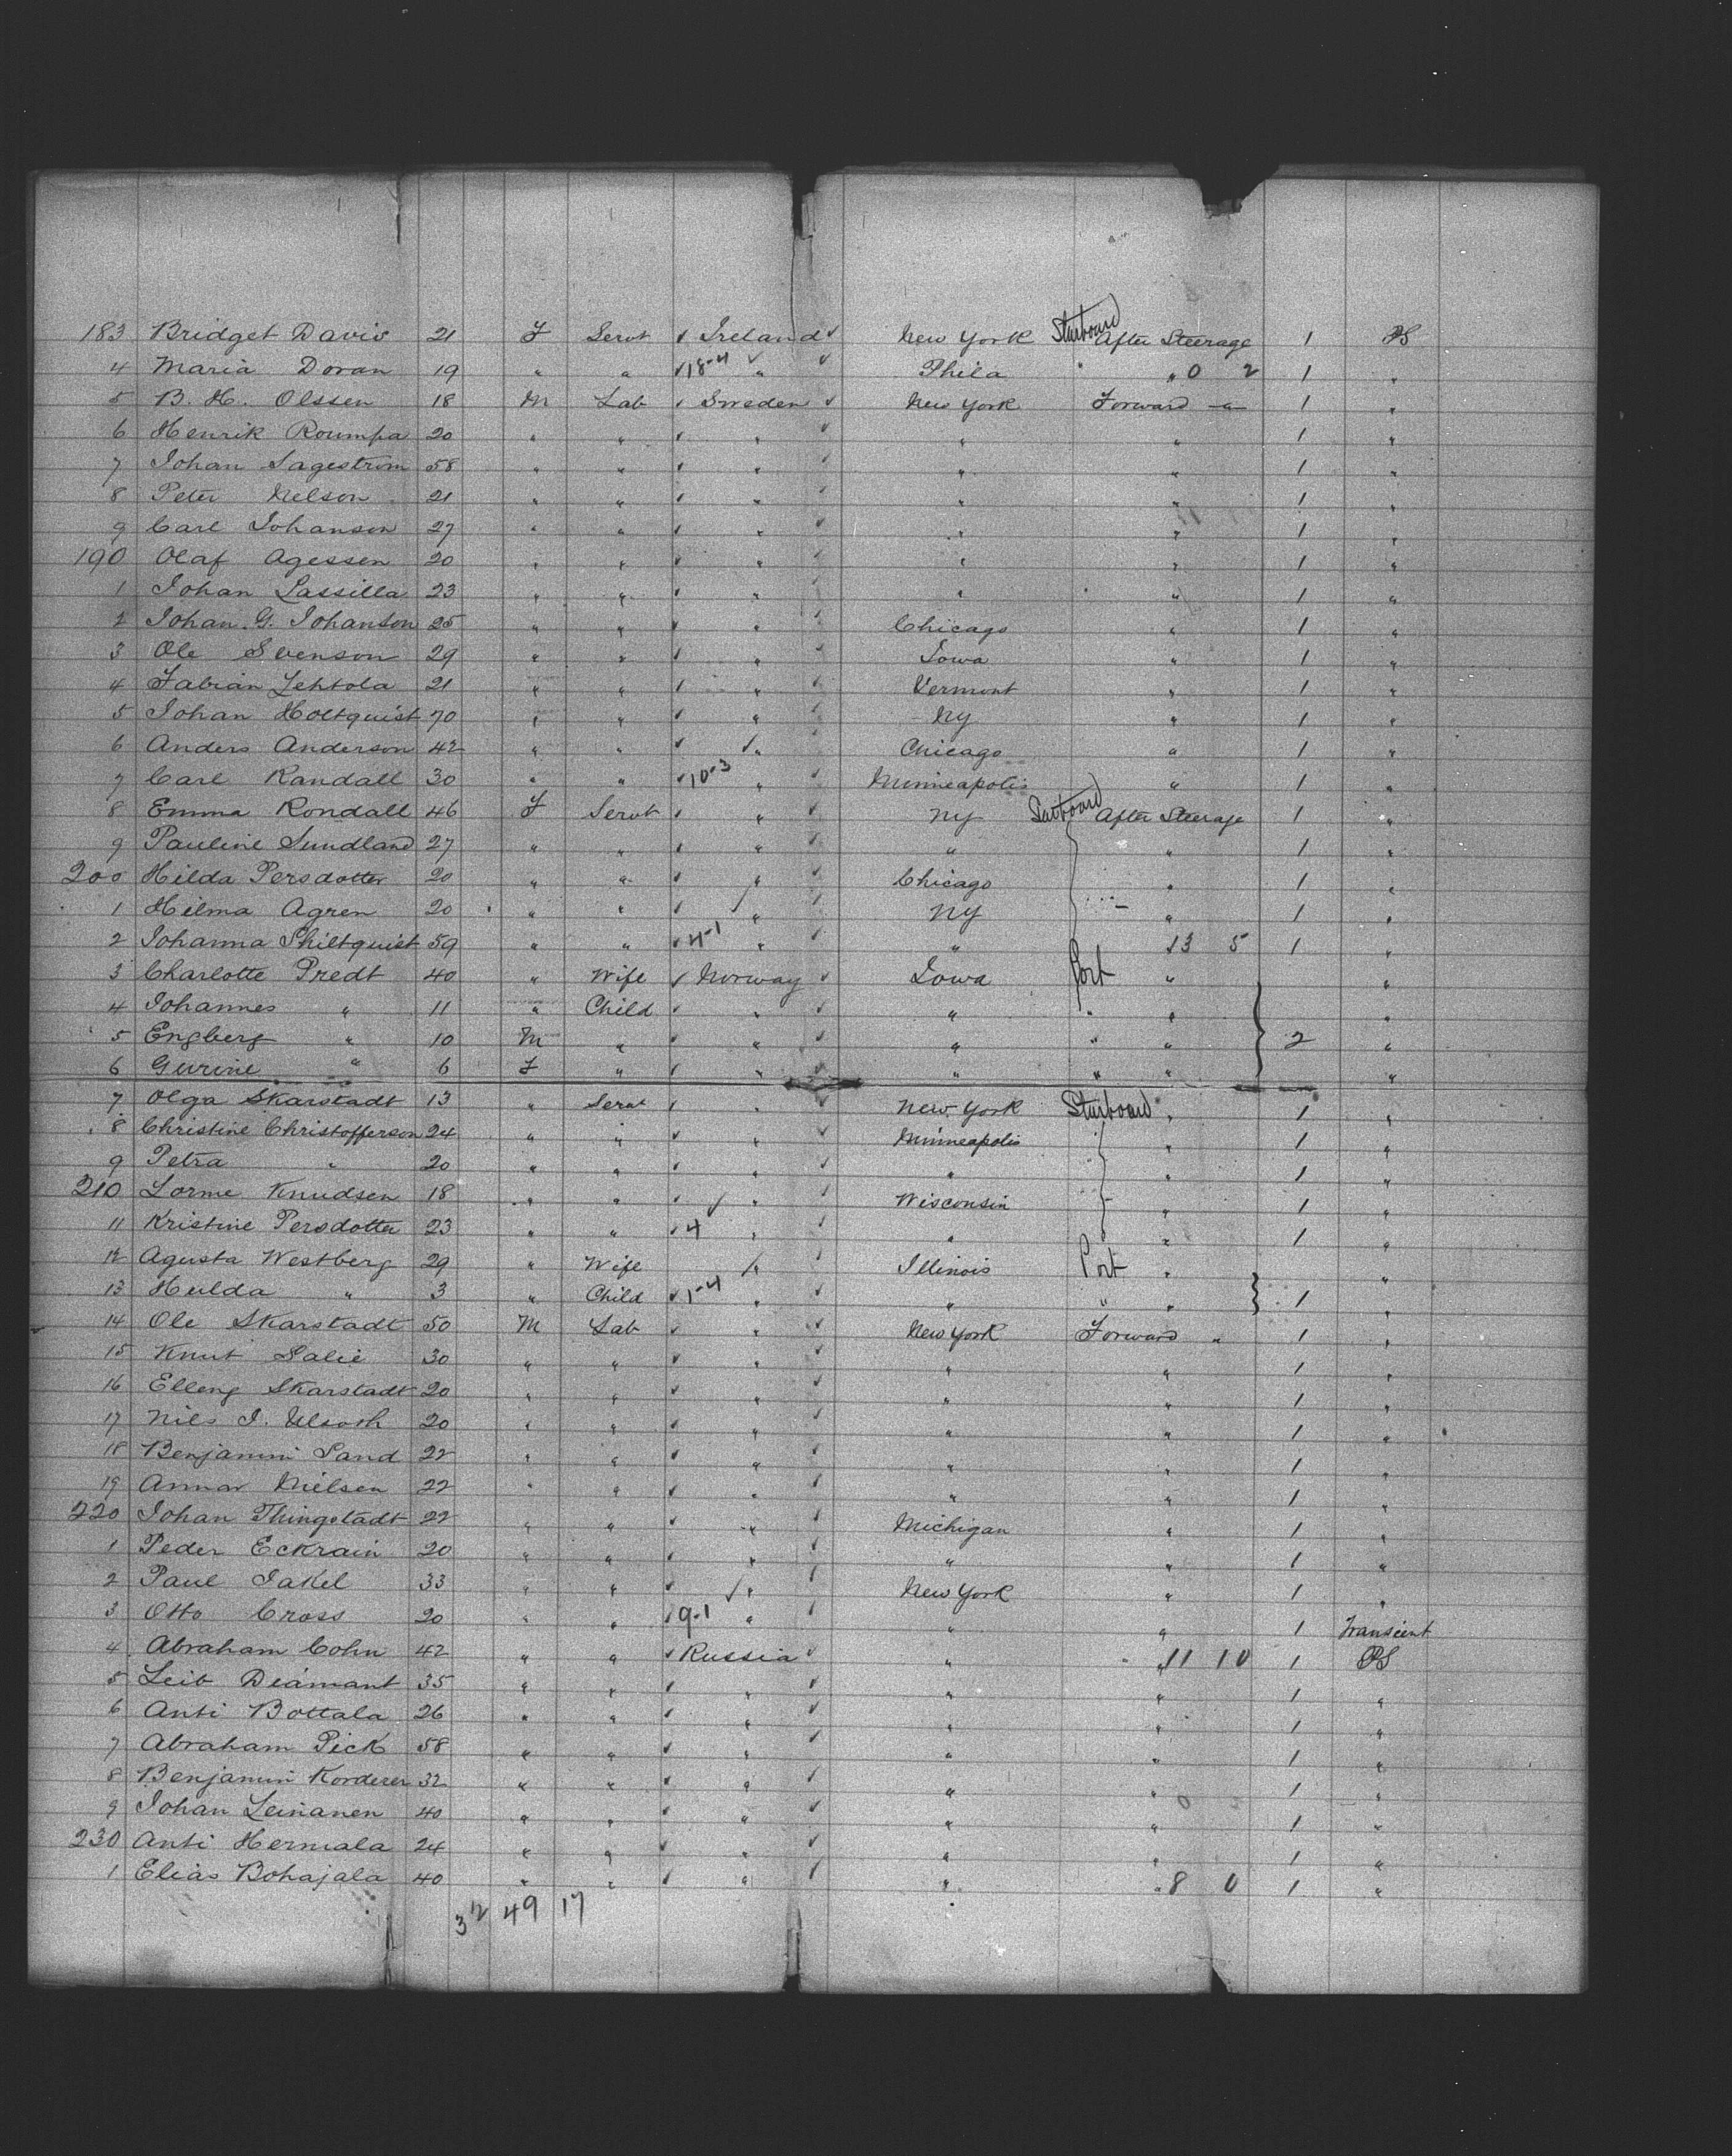 183 Bridget Davis 21 F Servt ✓ Ireland ✓ New York Starboard After Steerage 1 PS
4 Maria Doran 19 " " ✓ 18-4 ✓ " ✓ Phila " " 0 2 1 "
5 B. H. Olssen 18 M Lab ✓ Sweden ✓ New York Forward " 1 "
6 Henrik Roumpa 20 " " ✓ " ✓ " " 1 "
7 Johan Lagestrom 58 " " ✓ " ✓ " " 1 "
8 Peter Nelson 21 " " ✓ " ✓ " " 1 "
9 Carl Johanson 27 " " ✓ " ✓ " " 1 "
190 Olaf Agessen 20 " " ✓ " ✓ " " 1 "
1 Johan Lassilla 23 " " ✓ " ✓ " " 1 "
2 Johan G. Johanson 25 " " ✓ " ✓ Chicago " 1 "
3 Ole Svenson 29 " " ✓ " ✓ Iowa " 1 "
4 Fabian Lehtola 21 " " ✓ " ✓ Vermont " 1 "
5 Johan Holtquist 70 " " ✓ " ✓ NY " 1 "
6 Anders Anderson 42 " " ✓ ✓ " Chicago " 1 "
7 Carl Randall 30 " " ✓ 10-3 " ✓ Minneapolis " 1 "
8 Emma Rondall 46 F Servt ✓ " ✓ NY Starboard After Steerage 1 "
9 Pauline Sundland 27 " " ✓ " ✓ " " 1 "
200 Hilda Persdotter 20 " " ✓ " ✓ Chicago " 1 "
1 Hilma Agren 20 " " ✓ ✓ " ✓ NY " 1 "
2 Johanna Philtquist 59 " " ✓ 4-1 " ✓ " 13 5 1 "
3 Charlotte Predt 40 " Wife ✓ Norway ✓ Iowa Port " "
4 Johannes " 11 " Child ✓ " ✓ " " " "
5 Engberg " 10 M " ✓ " ✓ " " " 2 "
6 Gurine " 6 F " ✓ " ✓ " " " "
7 Olga Skarstadt 13 " Servt ✓ " ✓ New York Starboard " 1 "
8 Christine Christofferson 24 " " ✓ " ✓ Minneapolis " 1 "
9 Petra " 20 " " ✓ " ✓ " " 1 "
210 Lorme Knudsen 18 " " ✓ ✓ " ✓ Wisconsin " 1 "
11 Kristine Persdotter 23 " " ✓ 4 " ✓ " " 1 "
12 Agusta Westberg 29 " Wife ✓ " ✓ Illinois Port " "
13 Hulda " 3 " Child ✓ 1-4 " ✓ " " " 1 "
14 Ole Skarstadt 50 M Lab ✓ " ✓ New York Forward " 1 "
15 Knut Salie 30 " " ✓ " ✓ " " 1 "
16 Elleng Skarstadt 20 " " ✓ " ✓ " " 1 "
17 Nils J. 20 " " ✓ " ✓ " " 1 "
18 Benjamin Sand 22 " " ✓ " ✓ " " 1 "
19 Annar Nielsen 22 " " ✓ " ✓ " " 1 "
220 Johan Thingstadt 22 " " ✓ " ✓ Michigan " 1 "
1 Peder Eckrain 20 " " ✓ " ✓ " " 1 "
2 Paul Jakel 33 " " ✓ ✓ " ✓ New York " 1 "
3 Otto Cross 20 " " ✓ 9-1 " ✓ " " 1 Transient
4 Abraham Cohn 42 " " ✓ Russia ✓ " " 11 10 1 PS
5 Leib Diamant 35 " " ✓ " ✓ " " 1 "
6 Anti Bottala 26 " " ✓ " ✓ " " 1 "
7 Abraham Pick 58 " " ✓ " ✓ " " 1 "
8 Benjamin Korderer 32 " " ✓ " ✓ " " 1 "
9 Johan Leinanen 40 " " ✓ " ✓ " " 1 "
230 Anti Hermala 24 " " ✓ " ✓ " " 1 "
1 Elias Bohajala 40 " " ✓ " ✓ " " 8 0 1 "
32 49 17